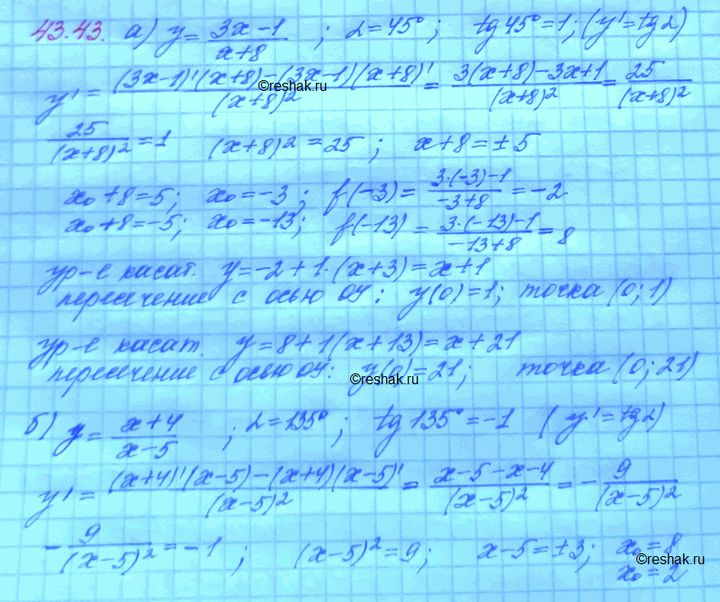 43.43. а) y = (3x-1)/(x+8) ; α=45° ; tg 45°=1; (y'=tgα)
y' = ((3x-1)'(x+8)-(3x-1)(x+8)')/(x+8)² = (3(x+8)-3x+1)/(x+8)² = 25/(x+8)²
©reshak.ru
25/(x+8)² = 1 (x+8)² = 25 ; x+8=±5
x₀+8=5; x₀=-3 ; f(-3) = (3·(-3)-1)/(-3+8) = -2
x₀+8=-5; x₀=-13; f(-13) = (3·(-13)-1)/(-13+8) = 8
ур-е касат. y=-2+1·(x+3)=x+1
пересечение с осью OY: y(0)=1; точка (0;1)
ур-е касат. y=8+1(x+13)=x+21
пересечение с осью OY: y(0)=21; точка (0;21)
©reshak.ru
б) y = (x+4)/(x-5) ; α=135° ; tg 135°=-1 (y'=tgα)
y' = ((x+4)'(x-5)-(x+4)(x-5)')/(x-5)² = (x-5-x-4)/(x-5)² = -9/(x-5)²
-9/(x-5)² = -1 ; (x-5)²=9; x-5=±3; x₀=8
x₀=2
©reshak.ru